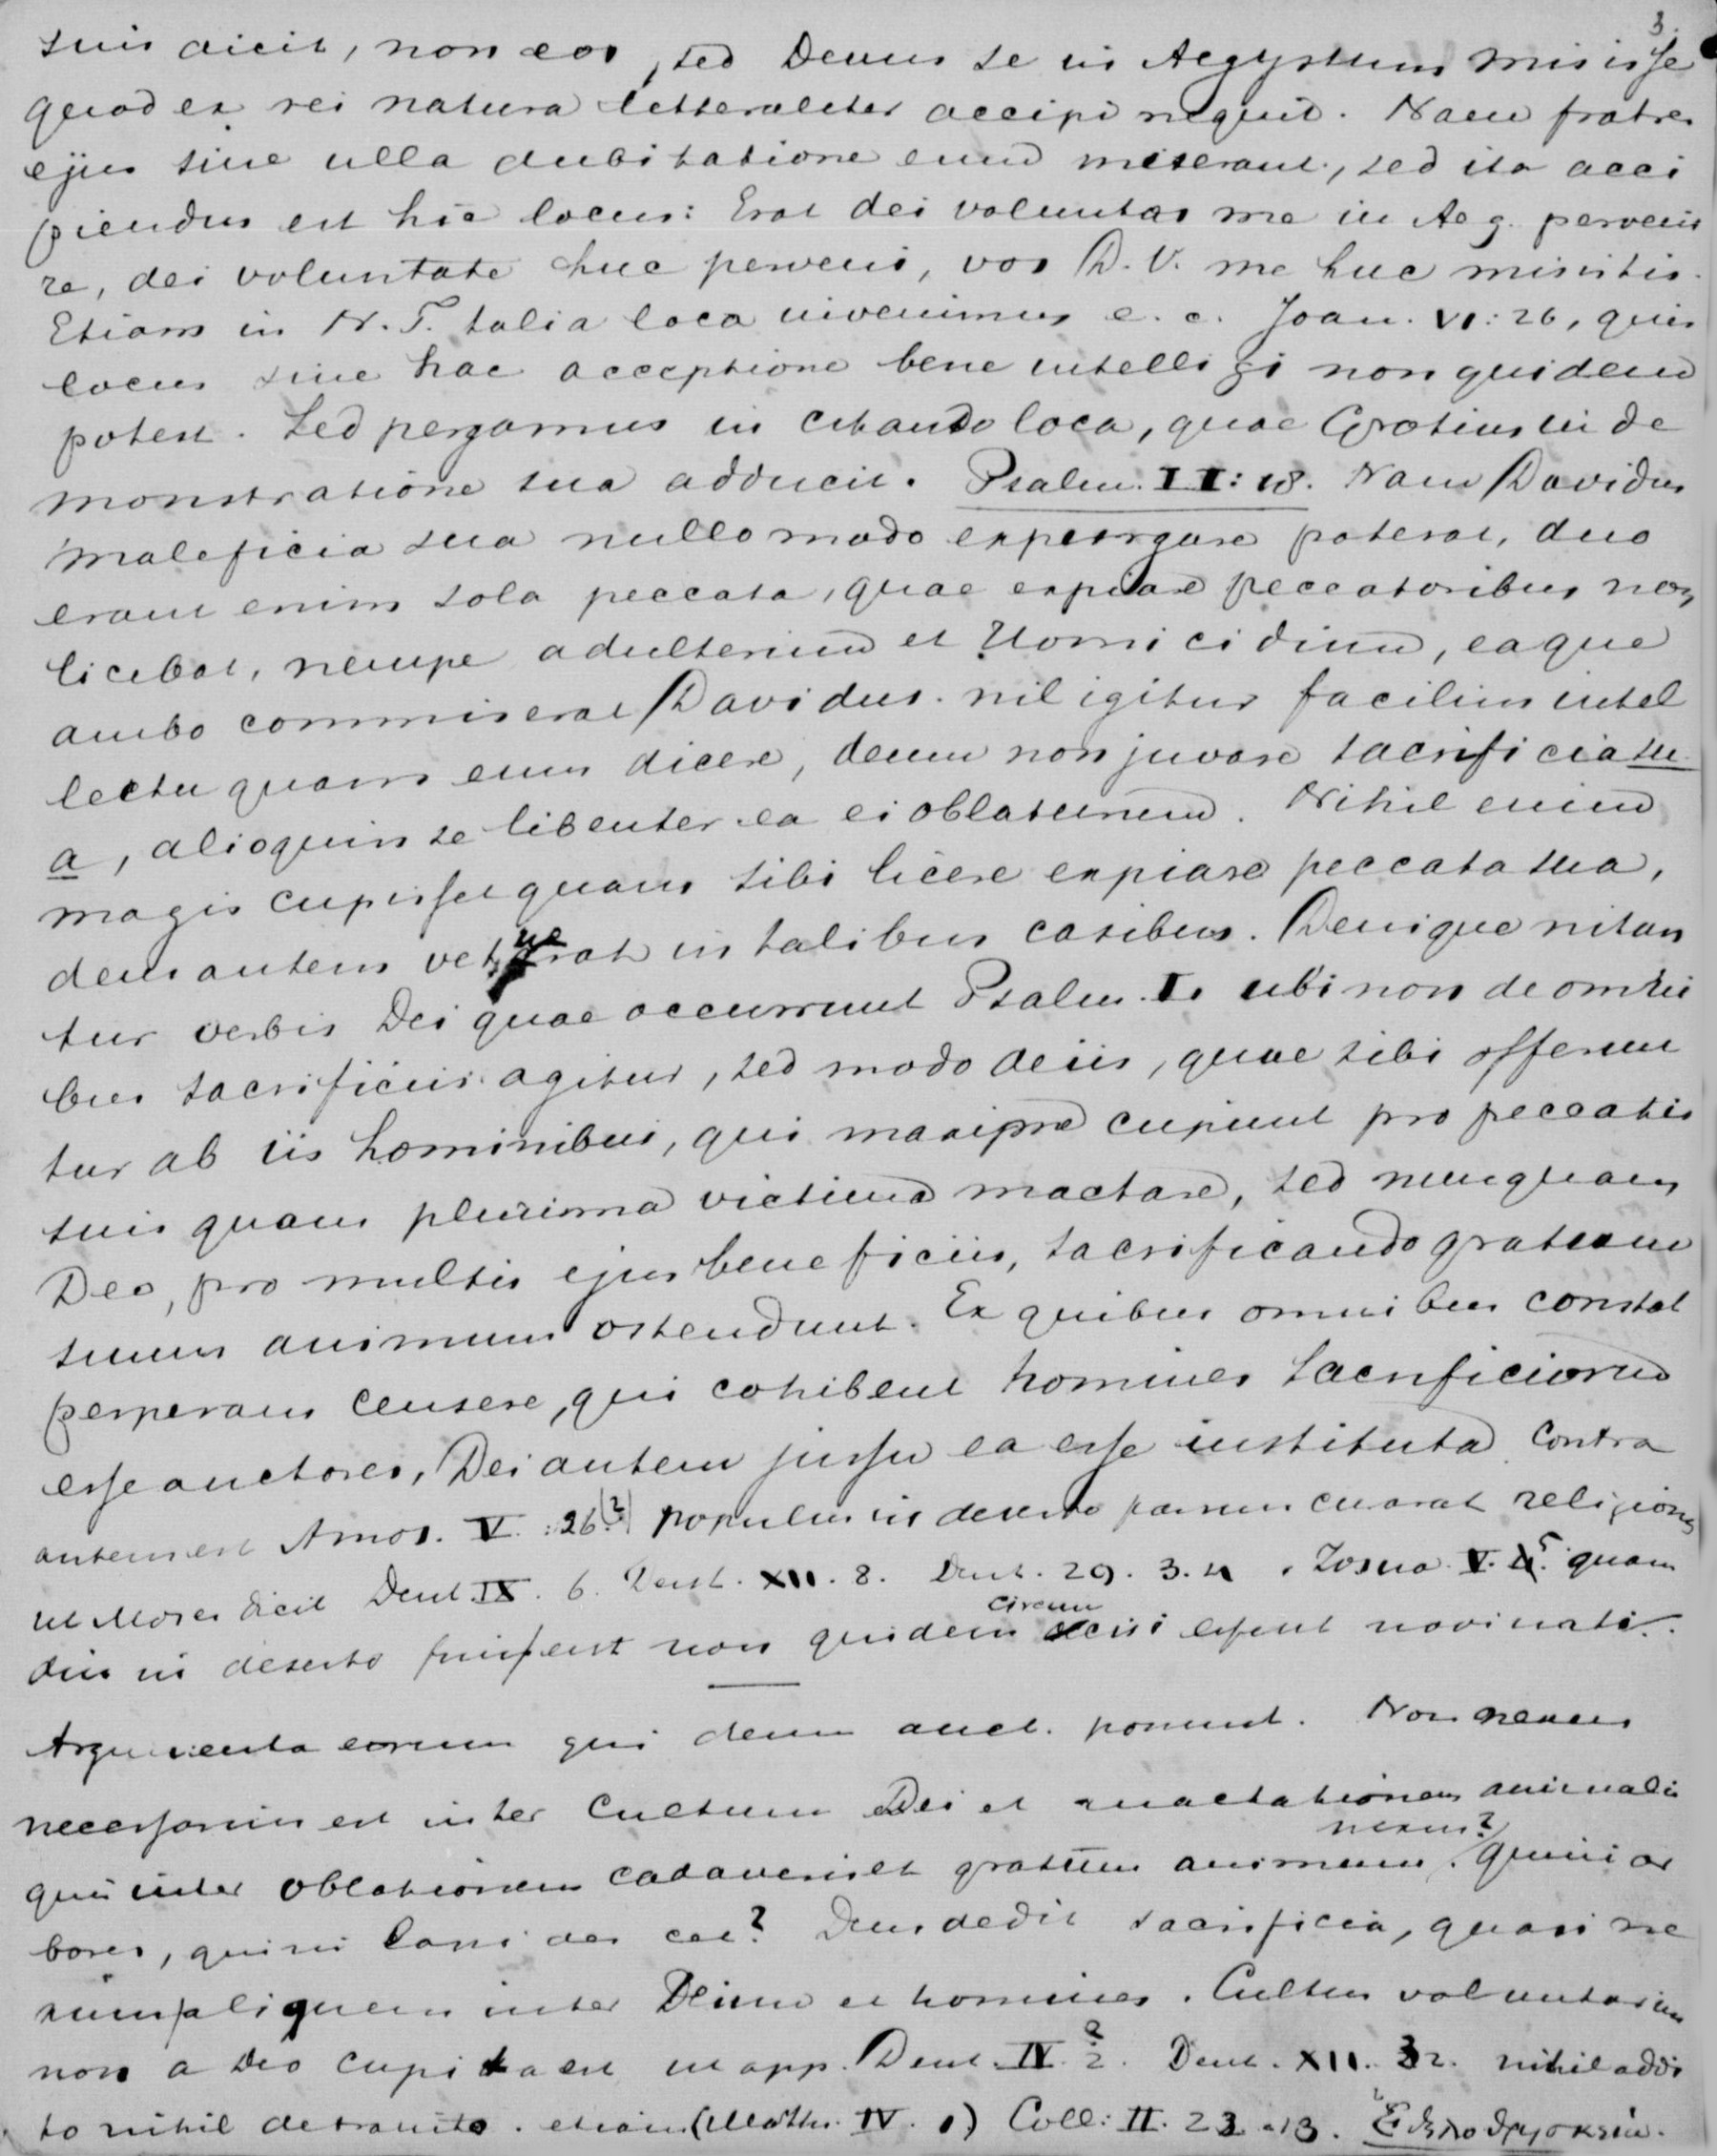 3.
suis dicit, non eos, sed Deum se in Aegyptum misisse
quod ex rei natura letteraliter accipi nequit. Nam fratres
ejus sine ulla dubitatione eum miserant, sed ita acci
piendus est hic locus: Erat dei voluntas me in Aeg. perveni
re, dei voluntate huc perveni, vos D. V. me huc misistis.
Etiam in N. T. talia loca invenimus e. c. Joan. VI: 26, quis
locus sine hac acceptione bene intelligi non quidem
potest. Sed pergamus in citando loca, quae Grotius in de
monstratione sua adducit. Psalm. II: 18. Nam Davidus
maleficia sua nullo modo expurgare poterat, duo
erant enim sola peccata, quae expiare peccatoribus non
licebat, nempe adulterium et Homicidium, eaque
ambo commiserat Davidus. nil igitur facilius intel
lectu quam eum dicere, deum non juvare sacrificia su
a, alioquin se libenter ea ei oblaturum. Nihil enim
magis cupisset quam sibi licere expiare peccata sua,
deus autem vetuerat in talibus casibus. Denique nitun
tur verbis Dei quae occurrunt Psalm. I. ubi non de omni
bus sacrificiis agitur, sed modo de iis, quae sibi offerun
tur ab iis hominibus, qui maxime cupiunt pro peccatis
suis quam plurima victima mactare, sed nunquam
Deo, pro multis ejus beneficiis, sacrificando gratum
suum animum ostendunt. Ex quibus omnibus constat
perperam censere, qui cohibent homines sacrificiorum
esse auctores, Dei autem jussu ea esse instituta. Contra
autem est Amos. V. : 26 (?) populus in deserto parum curarat religionem
ut Moses dicit Deut. IX. 6. Deut. XII. 8. Deut. 29. 3. 4. Josua. V. 5. quam
diu in deserto fuissent non quidem circumcisi essent novi nati.
Argumenta eorum qui deum auct. ponunt. Non nexus
necessarius est inter Cultum Dei et mactationem animalis
quis inter oblationem cadaveris et gratum animum nexus? quini ar
bores, quini lapides cet? Deus dedit sacrificia, quasi ne
xum aliquem inter Deum et homines. Cultus voluntarius
non a Deo cupita est ut app. Deut. IV. 2?. Deut. XII. 32. nihil addi
to nihil detrauito. etiam (Matth. IV. 1) Coll: II. 23 . 18.